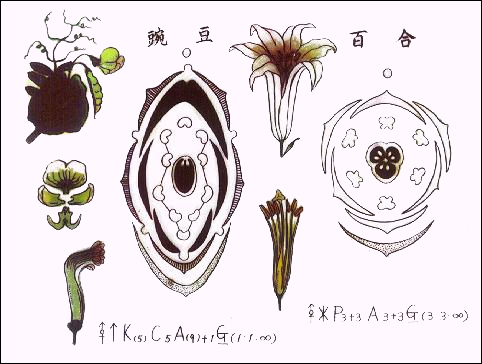 豌豆
百合
⚥↑K(5)C5A(9)+1G(1·1·∞)
⚥*P3+3A3+3G(3·3·∞)